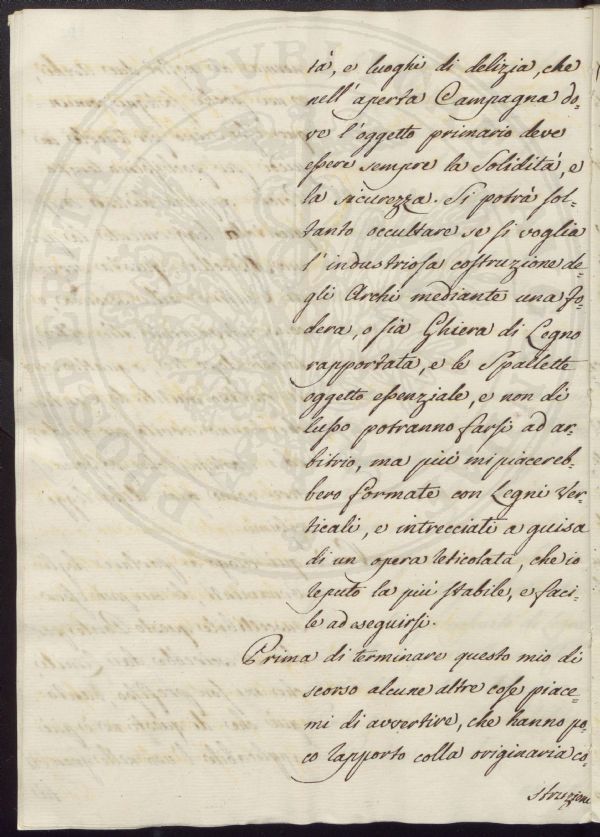 tà, e luoghi di delizia, che
nell'aperta Campagna do-
ve l'oggetto primario deve
essere sempre la Solidità, e
la sicurezza. Si potrà sol-
tanto occultare se si voglia
l'industriosa costruzione de-
gli Archi mediante una fo-
dera, o sia Ghiera di Legno
rapportata, e le Spallette
oggetto essenziale, e non di
lusso potranno farsi ad ar-
bitrio, ma più mi piacereb-
bero formate con Legni Ver-
ticali, e intrecciati a guisa
di un opera reticolata, che io
reputo la più stabile, e faci-
le ad eseguirsi.
Prima di terminare questo mio di
scorso alcune altre cose piace-
mi di avvertire, che hanno po-
co rapporto colla originaria co-
struzione